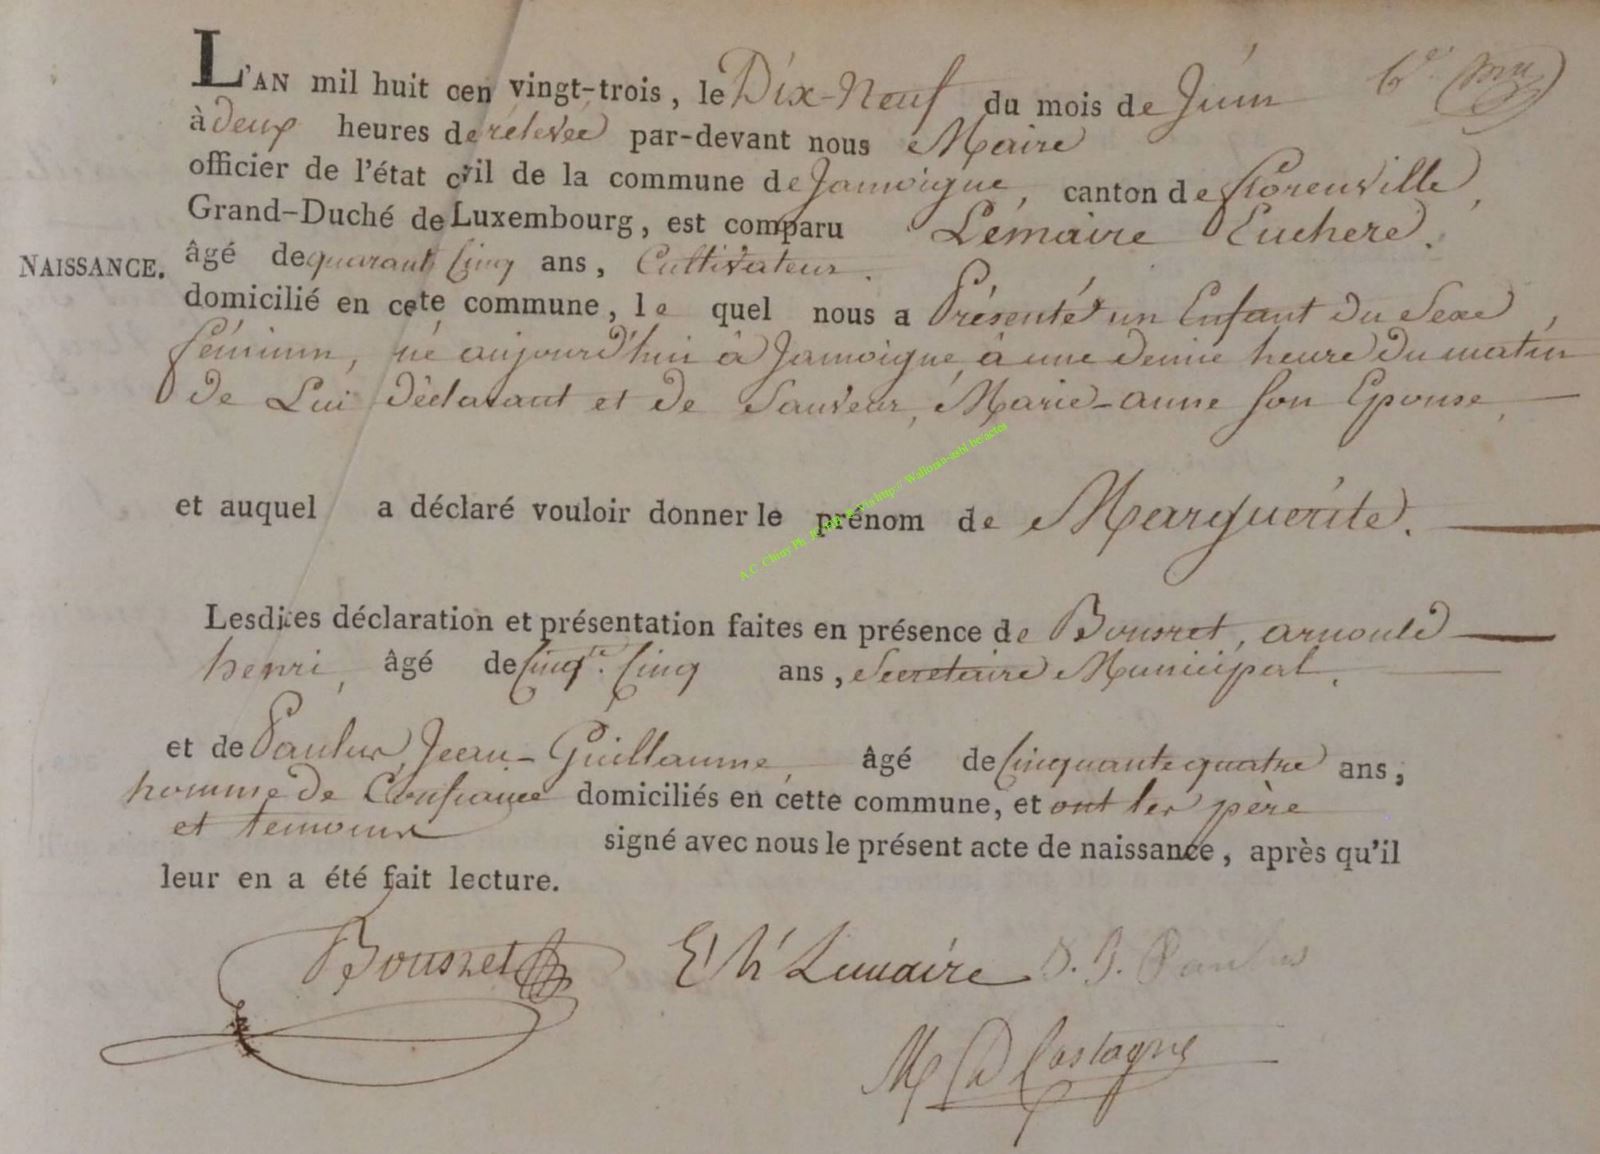 L'AN mil huit cen vingt-trois, le Dix-Neuf du mois de Juin
à deux heures de rélevée par-devant nous Maire
officier de l'état civil de la commune de Jamoigne, canton de florenville,
Grand-Duché de Luxembourg, est comparu Lémaire Euchere.
NAISSANCE.
âgé de quarante Cinq ans, Cultivateur.
domicilié en cete commune, le quel nous a Présenté un Enfant du Sexe
féminin, né aujourd'hui à Jamoigne, à une demie heure du matin
de Lui déclarant et de Sauveur, Marie-anne Son Epouse,
et auquel a déclaré vouloir donner le prénom de Marguérite.
Lesdites déclaration et présentation faites en présence de Bousret, arnould
henri, âgé de Cinqte. Cinq ans, Secretaire Municipal.
et de Paulus, Jean-Guillaume, âgé de Cinquante quatre ans,
homme de Confiance domiciliés en cette commune, et ont les père
et temoins signé avec nous le présent acte de naissance, après qu'il
leur en a été fait lecture.
Bousret E h Lemaire J. G. Paulus
Castagne